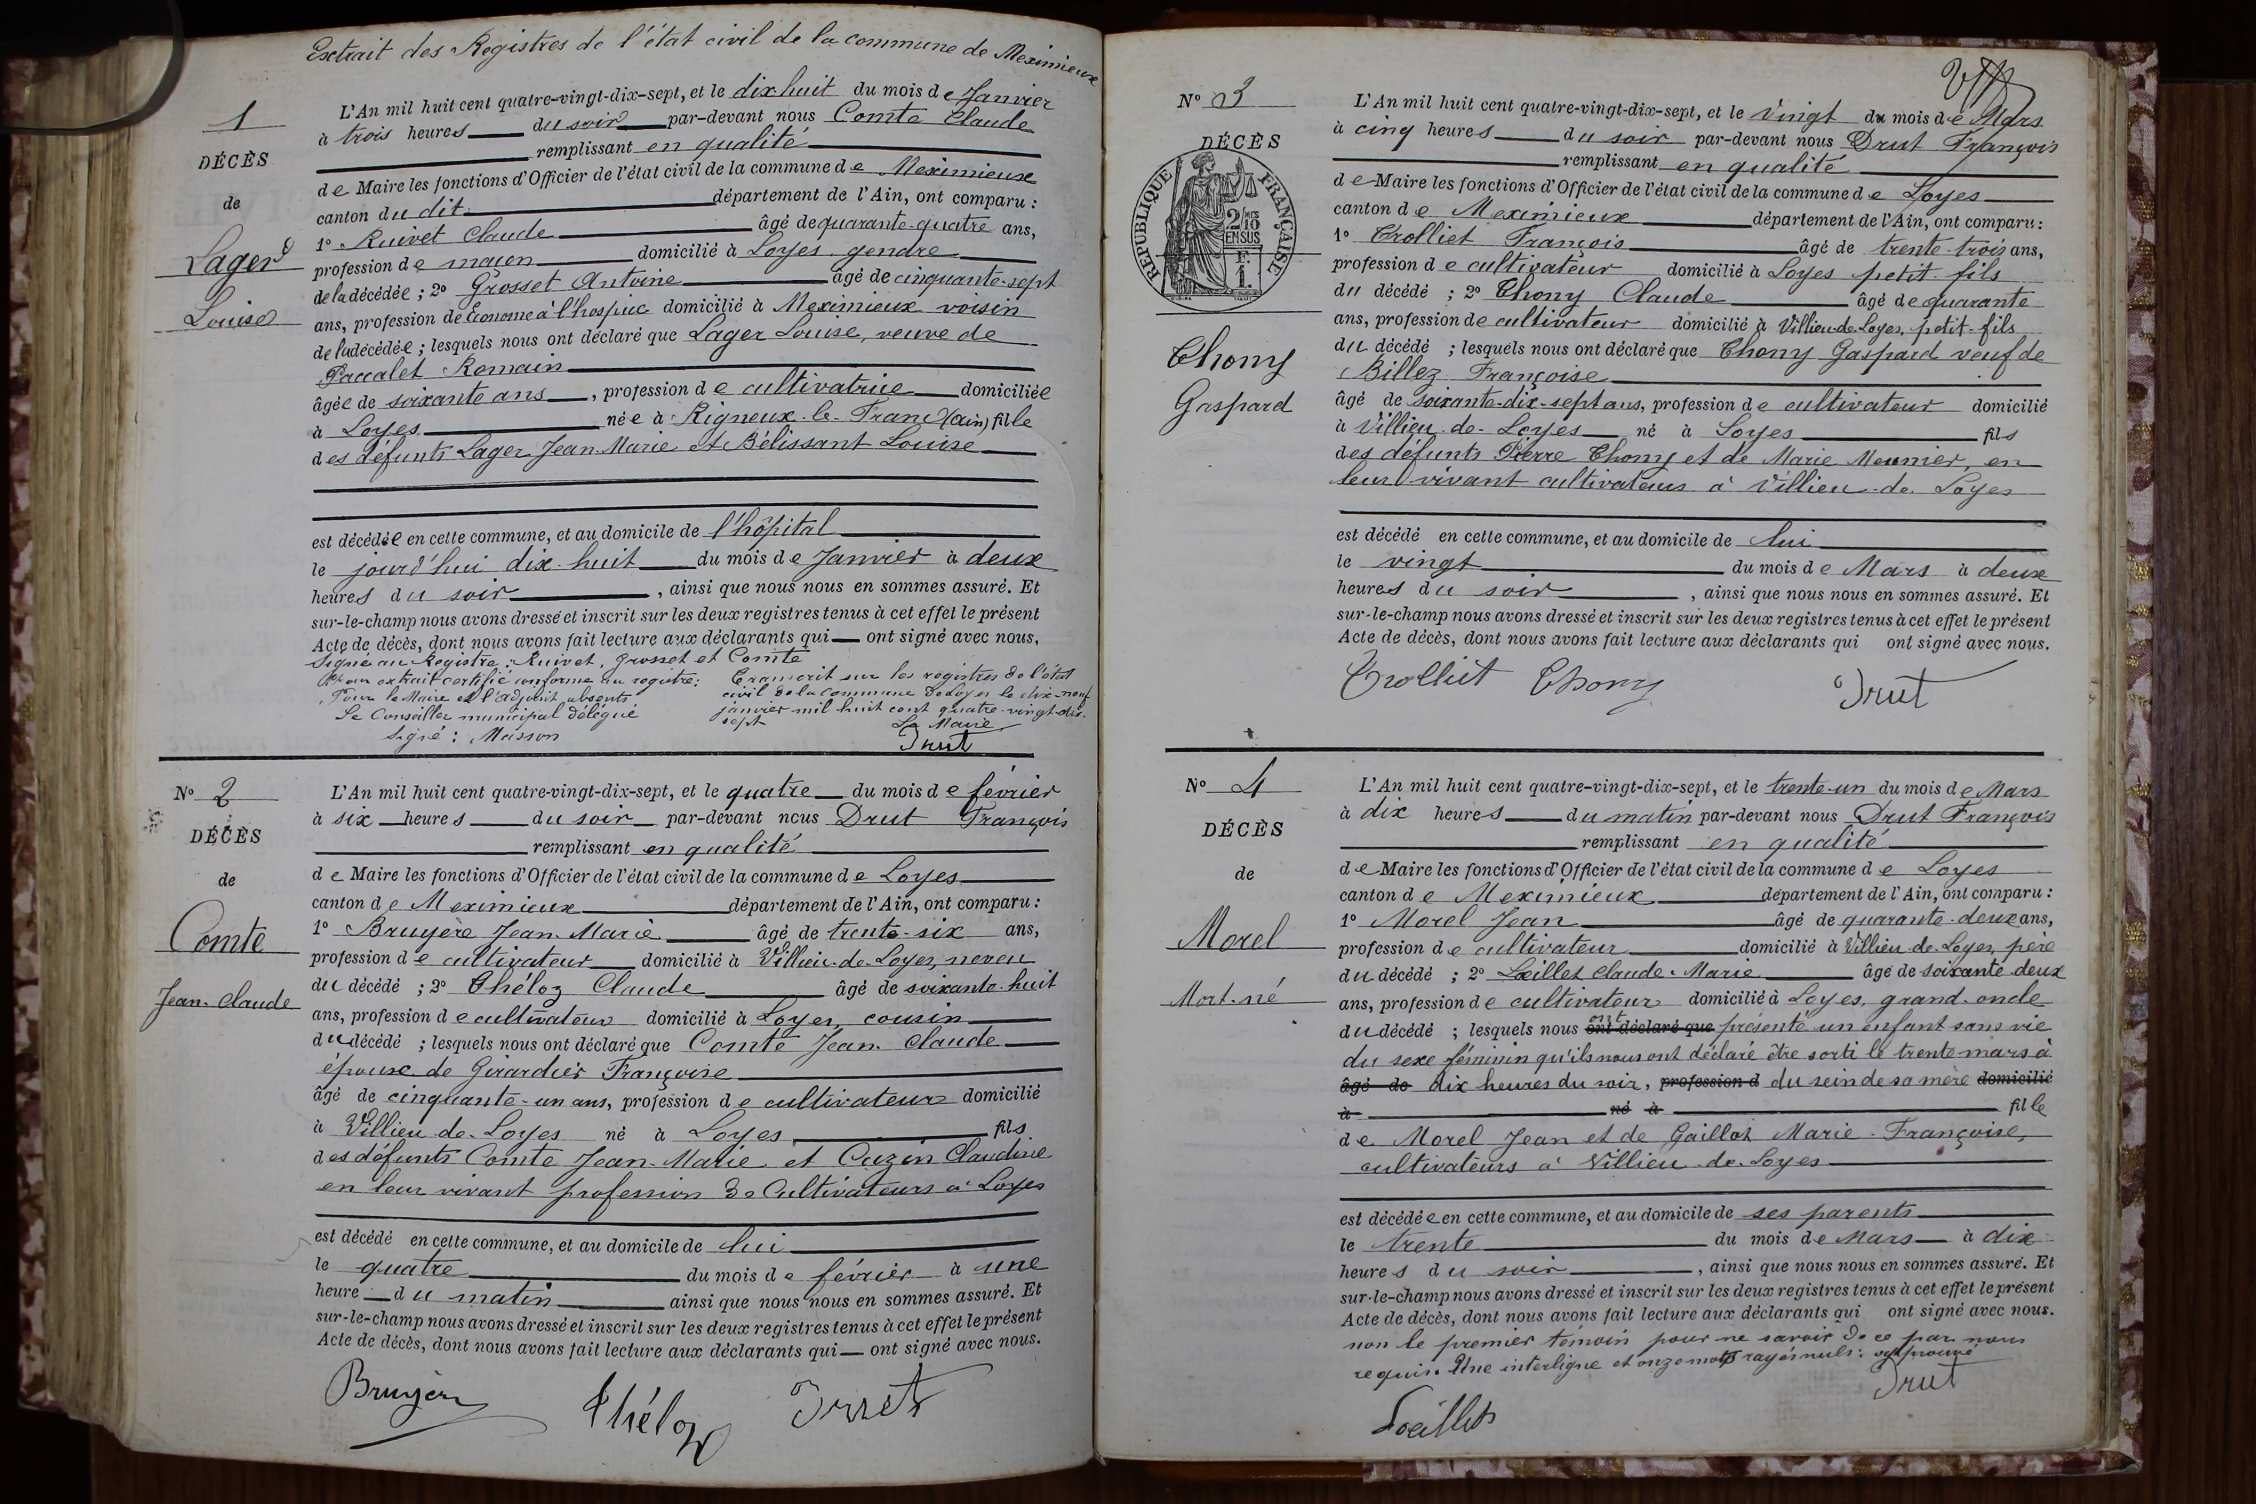 Extrait des Registres de l'état civil de la commune de Meximieux
1
DÉCÈS
de
Lager
Louise
L'An mil huit cent quatre-vingt-dix-sept, et le dix huit du mois de Janvier
à trois heures du soir par-devant nous Comte Claude
remplissant en qualité
de Maire les fonctions d'Officier de l'état civil de la commune de Meximieux
canton du dit département de l'Ain, ont comparu :
1° Ruivet Claude âgé de quarante-quatre ans,
profession de maçon domicilié à Loyes gendre
de la décédée ; 2° Grosset Antoine âgé de cinquante-sept
ans, profession de Econome à l'hospice domicilié à Meximieux voisin
de la décédée ; lesquels nous ont déclaré que Lager Louise, veuve de
Paccalet Romain
âgée de soixante ans, profession de cultivatrice domiciliée
à Loyes née à Rigneux-le-Franc (Ain) fille
des défunts Lager Jean-Marie et Bélissant Louise
est décédée en cette commune, et au domicile de l'hôpital
le jourd'hui dix-huit du mois de Janvier à deux
heures du soir, ainsi que nous nous en sommes assuré. Et
sur-le-champ nous avons dressé et inscrit sur les deux registres tenus à cet effet le présent
Acte de décès, dont nous avons fait lecture aux déclarants qui ont signé avec nous.
Signé au Registre : Ruivet, Grosset et Comte
Pour extrait certifié conforme au registre :
Pour le Maire et l'adjoint absents
Le Conseiller municipal délégué
Signé : Moisson
Transcrit sur les registres de l'état
civil de la commune de Loyes le dix-neuf
janvier mil huit cent quatre-vingt-dix-
sept
Le Maire
Drut
N° 2
DÉCÈS
de
Comte
Jean-Claude
L'An mil huit cent quatre-vingt-dix-sept, et le quatre du mois de février
à six heures du soir par-devant nous Drut François
remplissant en qualité
de Maire les fonctions d'Officier de l'état civil de la commune de Loyes
canton de Meximieux département de l'Ain, ont comparu :
1° Bruyère Jean-Marie âgé de trente-six ans,
profession de cultivateur domicilié à Villieu-de-Loyes, neveu
du décédé ; 2° Théloz Claude âgé de soixante-huit
ans, profession de cultivateur domicilié à Loyes, cousin
du décédé ; lesquels nous ont déclaré que Comte Jean-Claude
épouse de Girardier Françoise
âgé de cinquante-un ans, profession de cultivateur domicilié
à Villieu-de-Loyes né à Loyes, fils
des défunts Comte Jean-Marie et Cuzin Claudine
en leur vivant profession de Cultivateurs à Loyes
est décédé en cette commune, et au domicile de lui
le quatre du mois de février à une
heure du matin ainsi que nous nous en sommes assuré. Et
sur-le-champ nous avons dressé et inscrit sur les deux registres tenus à cet effet le présent
Acte de décès, dont nous avons fait lecture aux déclarants qui ont signé avec nous.
Bruyère Théloz Drut
N° 3
DÉCÈS
RÉPUBLIQUE FRANÇAISE
2/10 MES
EN SUS
F.
1.
Thony
Gaspard
L'An mil huit cent quatre-vingt-dix-sept, et le vingt du mois de Mars
à cinq heures du soir par-devant nous Drut François
remplissant en qualité
de Maire les fonctions d'Officier de l'état civil de la commune de Loyes
canton de Meximieux département de l'Ain, ont comparu :
1° Trolliet François âgé de trente-trois ans,
profession de cultivateur domicilié à Loyes petit-fils
du décédé ; 2° Thony Claude âgé de quarante
ans, profession de cultivateur domicilié à Villieu-de-Loyes, petit-fils
du décédé ; lesquels nous ont déclaré que Thony Gaspard veuf de
Billez Françoise
âgé de soixante-dix-sept ans, profession de cultivateur domicilié
à Villieu-de-Loyes né à Loyes fils
des défunts Pierre Thony et de Marie Meunier, en
leur vivant cultivateurs à Villieu-de-Loyes
est décédé en cette commune, et au domicile de lui
le vingt du mois de Mars à deux
heures du soir, ainsi que nous nous en sommes assuré. Et
sur-le-champ nous avons dressé et inscrit sur les deux registres tenus à cet effet le présent
Acte de décès, dont nous avons fait lecture aux déclarants qui ont signé avec nous.
Trolliet Thony Drut
N° 4
DÉCÈS
de
Morel
Mort-né
L'An mil huit cent quatre-vingt-dix-sept, et le trente-un du mois de Mars
à dix heures du matin par-devant nous Drut François
remplissant en qualité
de Maire les fonctions d'Officier de l'état civil de la commune de Loyes
canton de Meximieux département de l'Ain, ont comparu :
1° Morel Jean âgé de quarante-deux ans,
profession de cultivateur domicilié à Villieu-de-Loyes, père
du décédé ; 2° Lœillet Claude-Marie âgé de soixante-deux
ans, profession de cultivateur domicilié à Loyes, grand-oncle
du décédé ; lesquels nous ont déclaré que ont présenté un enfant sans vie
du sexe féminin qu'ils nous ont déclaré être sorti le trente mars à
âgé de dix heures du soir, profession d du sein de sa mère domicilié
à né à fille
de Morel Jean et de Gaillot Marie-Françoise,
cultivateurs à Villieu-de-Loyes
est décédée en cette commune, et au domicile de ses parents
le trente du mois de Mars à dix
heures du soir, ainsi que nous nous en sommes assuré. Et
sur-le-champ nous avons dressé et inscrit sur les deux registres tenus à cet effet le présent
Acte de décès, dont nous avons fait lecture aux déclarants qui ont signé avec nous.
non le premier témoin pour ne savoir de ce par nous
requis. Une interligne et onze mots rayés nuls : approuvé
Drut
Loeillet